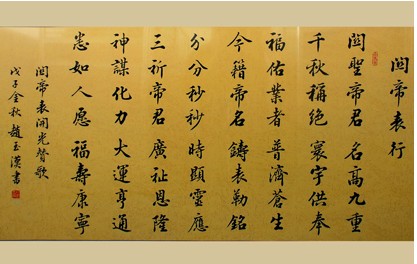 関帝表行
関聖帝君名高九重
千秋稱絕寰宇供奉
福佑業者普濟蒼生
今籍帝名鑄表勒銘
分分秒秒時顯靈應
三祈帝君廣祉恩隆
神謀化力大運亨通
悉如人愿福壽康寧
関帝表開光歌
戊子金秋趙玉漢書